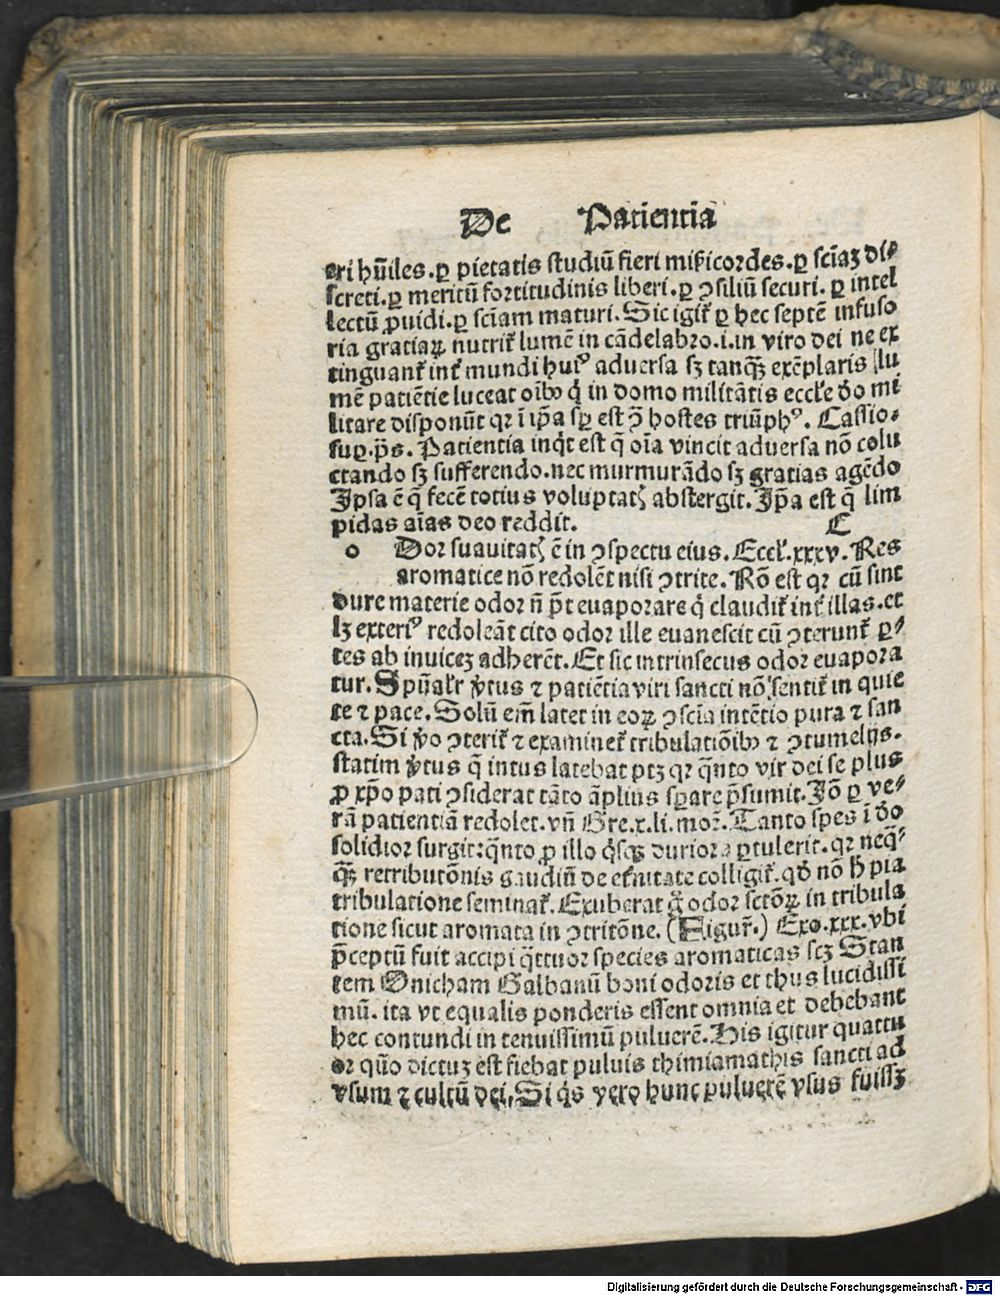 De Patientia
eri hūiles. ꝑ pietatis studiū fieri misṙicordes. ꝑ scīaꝫ di⸗
screti. ꝑ meritū fortitudinis liberi. ꝑ ↄsiliū securi. ꝑ intel
lectū ꝓuidi. ꝑ scīam maturi. Sic igit̃ ꝑ hec septē infuso
ria gratiaꝝ nutrit̃ lumē in cādelabro .i. in viro dei ne ex
tinguant̃ int̃ mundi huiꝰ aduersa sꝫ tanqꝫ exēplaris lu
mē patiētie luceat oībꝰ q̇ in domo militātis eccl'e d'o mi
litare disponūt qꝛ ī ip̄a sp̄ est ↄ̄ hostes triūphꝰ. Cassio⸗
suꝑ.p̄s. Patientia inq̇t est q̄ oīa vincit aduersa nō colu
ctando sꝫ sufferendo. nec murmurādo sꝫ gratias agēdo
Ipsa ē q̄ fecē totius voluptatꝭ abstergit. Ip̄a est q̄ lim
pidas aīas deo reddit. C
o Dor suauitatꝭ ē in ↄspectu eius. Eccl'. xxxv. Res
aromatice nō redolēt nisi ↄtrite. Rō est qꝛ cū sint
dure materie odor n̄ p̄t euaporare q̇ claudit̃ int̃ illas. et
lꝫ exteriꝰ redoleāt cito odor ille euanescit cū ↄterunt̃ ꝑ⸗
tes ab inuiceꝫ adherēt. Et sic intrinsecus odor euapora
tur. Spūal'r v̓tus ⁊ patiētia viri sancti nō sentit̃ in quie
te ⁊ pace. Solū em̄ latet in eoꝝ ↄscīa intētio pura ⁊ san
cta. Si v̓o ↄterit̃ ⁊ examinet̃ tribulatiōibꝰ ⁊ ↄtumelijs.
statim v̓tus q̄ intus latebat ptꝫ qꝛ q̄nto vir dei se plus
ꝓ xp̄o pati ↄsiderat tāto āplius sꝑare p̄sumit. Iō ꝑ ve⸗
rā patientiā redolet. vn̄ Gre. x. li. mor̃. Tanto spes ī d'o
solidior surgit: q̄nto ꝓ illo q̇sqꝫ duriora ꝑtulerit. qꝛ neq̄⸗
qꝫ retributōnis gaudiū de et̓nitate colligit̃. qd' nō h̓ pia
tribulatione seminat̃. Exuberat g̊ odor sctōꝝ in tribula
tione sicut aromata in ↄtritōne. (Figur̃.) Exo. xxx. vbi
p̄ceptū fuit accipi q̄ttuor species aromaticas scꝫ Stan
tem Onicham Galbanū boni odoris et thus lucidissi
mū. ita vt equalis ponderis essent omnia et debebant
hec contundi in tenuissimū puluerē. His igitur quattu
or quo dictuꝫ est fiebat puluis thimiamathis sancti ad
vsum ⁊ cultū dei, Si q̇s vero hunc puluerē vsus fuissꝫ
Digitalisierung gefördert durch die Deutsche Forschungsgemeinschaft - DFG